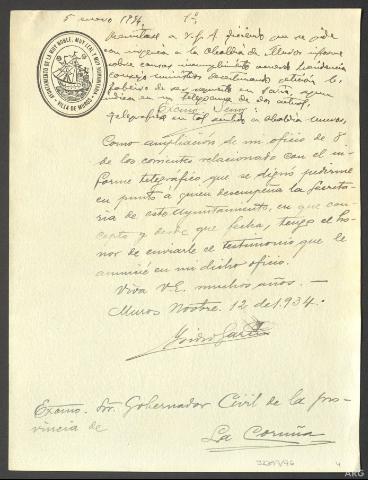 5 enero 1934.
AYUNTAMIENTO DE LA MUY NOBLE, MUY LEAL Y MUY HUMANITARIA VILLA DE MUROS
que se pide
con urgencia a la Alcaldía de Muros informe
sobre causas incumplimiento acuerdo
consejo ministros
de ser repuesto en
en un telegrama de dos actual,
Excmo. Señor:
telegrafía en tal sentido a Alcaldía Muros.
Como ampliación de mi oficio de 8
de los corrientes relacionado con el in-
forme telegráfico que se dignó pedirme
en punto a quien desempeña la Secreta-
ría de este Ayuntamiento, en que con-
cepto y desde que fecha, tengo el ho-
nor de enviarle el testimonio que le
anuncié en mi dicho oficio.
Viva V.E. muchos años.-
Muros Novbre. 12 de 1.934.-
Isidro
Excmo. Sr. Gobernador Civil de la pro-
vincia de
La Coruña
4
ARG